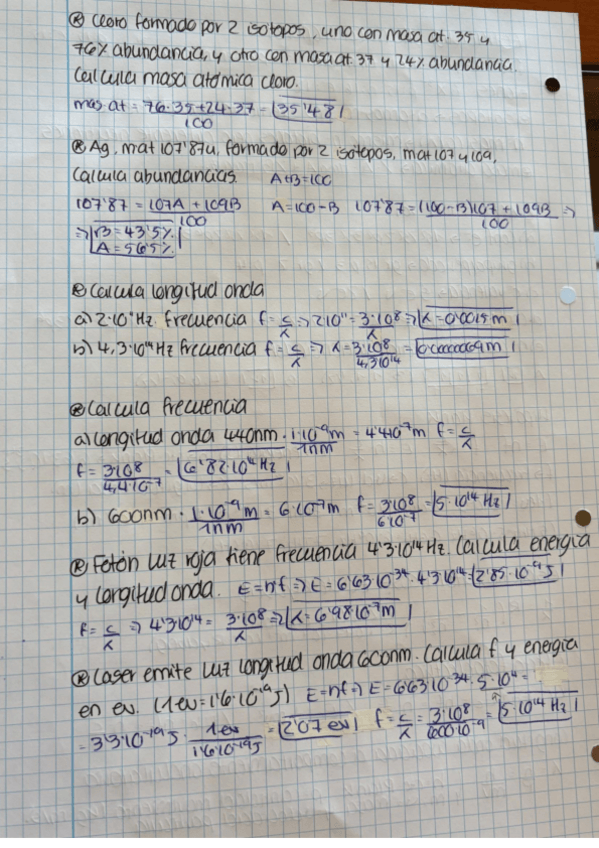 ® Cloro formado por 2 isotopos, uno con masa at. 35 y
76% abundancia, y otro con masa at. 37 y 24% abundancia.
Calcula masa atómica cloro.
mas.at = 76·35+24·37 = 35'48
100
® Ag, mat 107'87u, formado por 2 isotopos, mat 107 y 109,
Calcula abundancias. A+B=100
107'87 = 107A + 109B A=100-B 107'87 = (100-B)107 + 109B ⇒
100 100
⇒ B=43'5%
A=56'5%
® Calcula longitud onda
a) Hz frecuencia f = c ⇒ 2·10¹¹ = 3·10⁸ ⇒ λ=0'0015m
λ λ
b) 4,3·10¹⁴ Hz frecuencia f = c ⇒ λ = 3·10⁸ = m
λ 4,3·10¹⁴
® Calcula frecuencia
a) Longitud onda 440nm · 1·10⁻⁹m = 4'4·10⁻⁷m f = c
1nm λ
f = 3·10⁸ = 6'82·10¹⁴ Hz
4,4·10⁻⁷
b) 600nm · 1·10⁻⁹m = 6·10⁻⁷m f = 3·10⁸ = 5·10¹⁴ Hz
1nm 6·10⁻⁷
® Fotón luz roja tiene frecuencia 4'3·10¹⁴ Hz. Calcula energía
y longitud onda. E=hf ⇒ E = 6'63·10⁻³⁴·4'3·10¹⁴ = 2'85·10⁻¹⁹J
f = c ⇒ 4'3·10¹⁴ = 3·10⁸ ⇒ λ = 6'98·10⁻⁷m
λ λ
® Laser emite luz longitud onda 600nm. Calcula f y energía
en ev. (1ev=1'6·10⁻¹⁹J) E=hf ⇒ E=6'63·10⁻³⁴·5·10¹⁴ =
= 3'3·10⁻¹⁹J · 1ev = 2'07 ev f = c = 3·10⁸ = 5·10¹⁴ Hz
1'6·10⁻¹⁹J λ 600·10⁻⁹